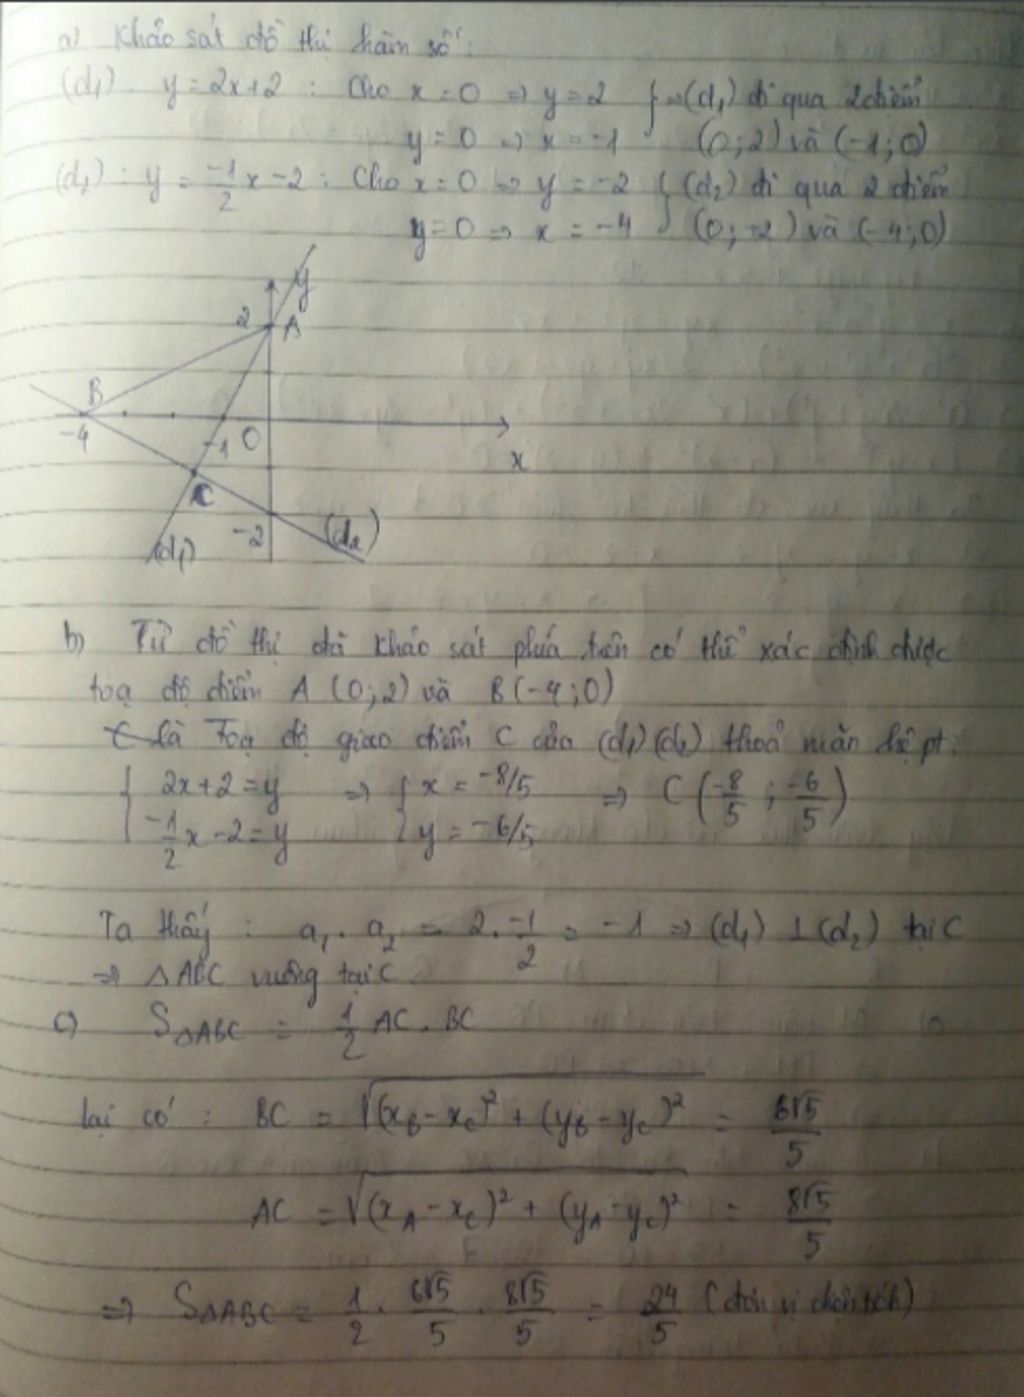 a) Khảo sát đồ thị hàm số:
(d₁): y = 2x+2 : Cho x = 0 => y = 2 } => (d₁) đi qua 2 điểm
y = 0 => x = -1 (0;2) và (-1;0)
(d₂): y = -1/2 x - 2 : Cho x = 0 => y = -2 } (d₂) đi qua 2 điểm
y = 0 => x = -4 (0;-2) và (-4;0)
y
2 A
B
-4 -1 O
x
C
(d₁) -2 (d₂)
b) Từ đồ thị đã khảo sát phía trên có thể xác định được
toạ độ điểm A (0;2) và B(-4;0)
Toạ độ giao điểm C của (d₁) (d₂) thoả mãn hệ pt:
{ 2x+2 = y => { x = -8/5 => C (-8/5 ; -6/5)
-1/2 x - 2 = y y = -6/5
Ta thấy : a₁. a₂ = 2. -1/2 = -1 => (d₁) ⊥ (d₂) tại C
=> △ABC vuông tại C
c) S△ABC = 1/2 AC . BC
lại có : BC = √((x_B - x_C)² + (y_B - y_C)²) = 6√5/5
AC = √((x_A - x_C)² + (y_A - y_C)²) = 8√5/5
=> S△ABC = 1/2 . 6√5/5 . 8√5/5 = 24/5 (đơn vị diện tích)